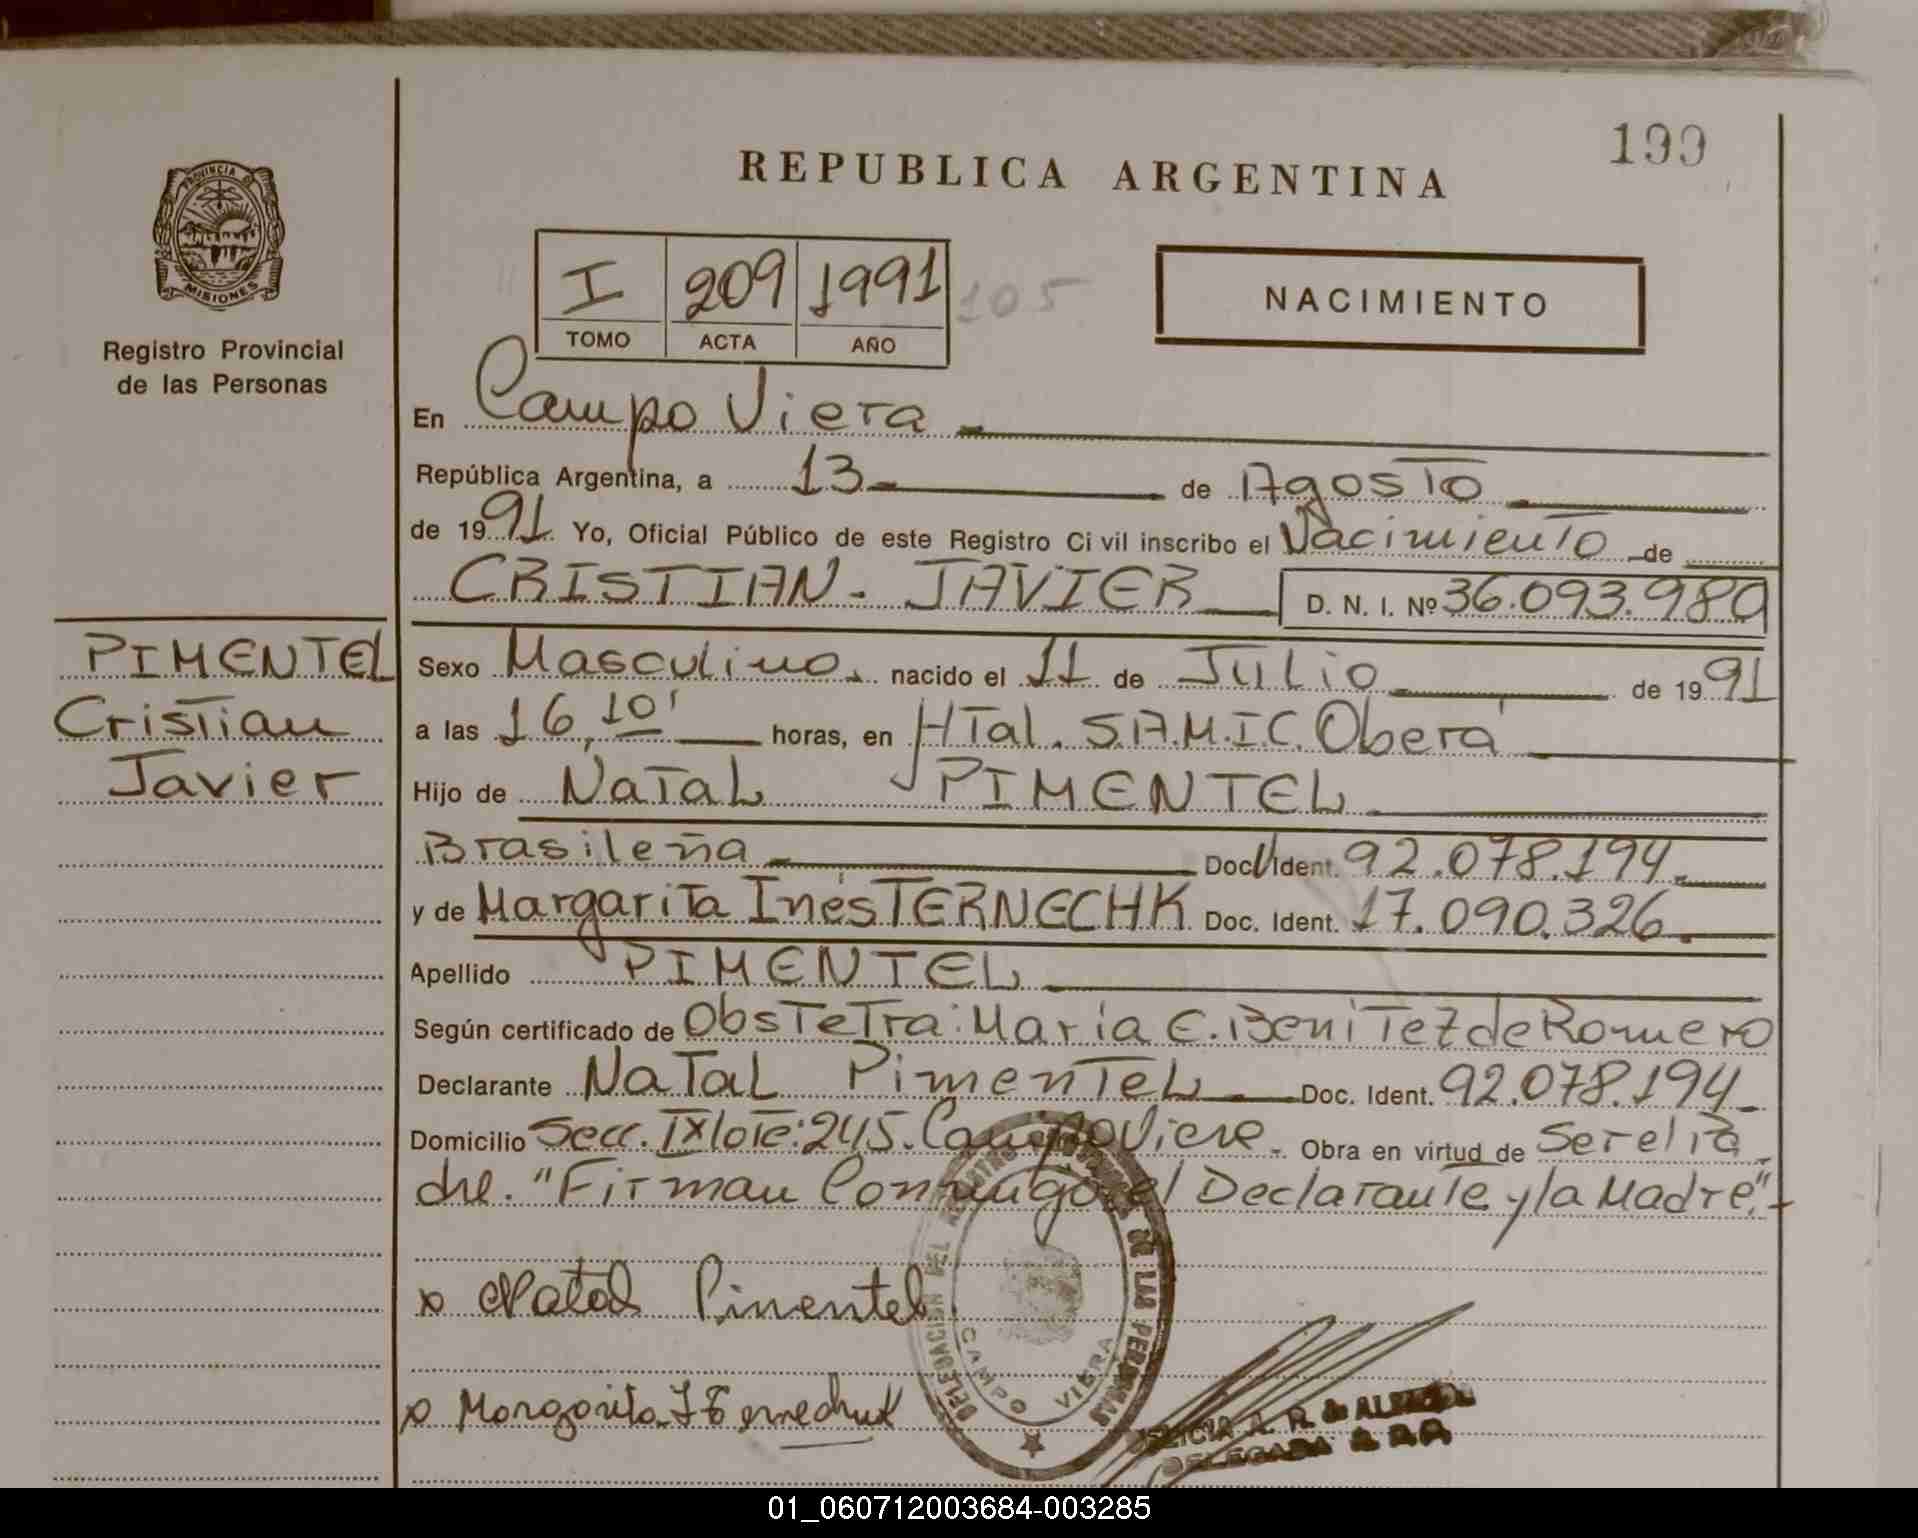 199
REPUBLICA ARGENTINA
PROVINCIA DE
MISIONES
Registro Provincial
de las Personas
I 209 1991 105
TOMO ACTA AÑO
NACIMIENTO
En Campo Viera
República Argentina, a 13 de Agosto
de 1991 Yo, Oficial Público de este Registro Civil inscribo el Nacimiento de
CRISTIAN - JAVIER D. N. I. Nº 36.093.980
PIMENTEL
Cristian
Javier
Sexo Masculino. nacido el 11 de Julio de 1991
a las 16,10' horas, en HTal. S.A.M.I.C. Oberá
Hijo de Natal PIMENTEL
Brasileña Doc. Ident. 92.078.194.
y de Margarita Inés TERNECHK Doc. Ident. 17.090.326.
Apellido PIMENTEL
Según certificado de Obstetra: María E. Benitez de Romero
Declarante Natal Pimentel Doc. Ident. 92.078.194
Domicilio Secc. IX lote: 245. Campo Viera. Obra en virtud de Ser el Pa
dre. "Firman Conmigo el Declarante y la Madre".-
x Natal Pimentel
x Margarita I Ternechuk
DELEGACION DEL REGISTRO DE LAS PERSONAS
CAMPO VIERA
A. R. de
DELEGADA
01_060712003684-003285